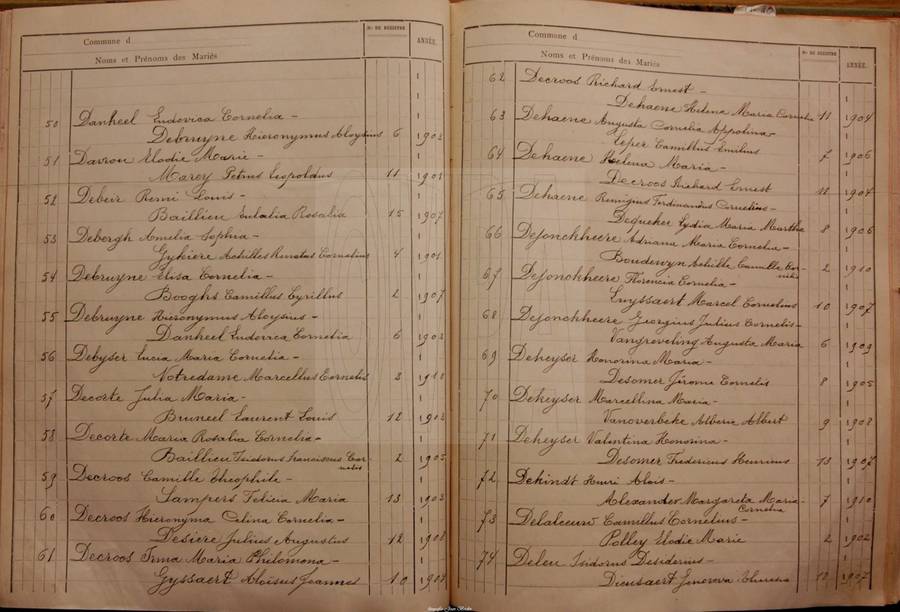 Commune d
Noms et Prénoms des Mariés
Nos DE REGISTRE
ANNÉE.
50 Danheel Ludovica Cornelia -
Debruyne Hieronymus Aloysius 6 1902
51 Davrou Elodie Marie -
Marey Petrus Leopoldus 11 1901
52 Debeir Remi Louis -
Baillieu Eulalia Rosalia 15 1907
53 Debergh Amelia Sophia -
Gykiere Achilles Renatus Cornelius 4 1901
54 Debruyne Elisa Cornelia -
Booghs Camillus Cyrillus 2 1907
55 Debruyne Hieronymus Aloysius -
Danheel Ludovica Cornelia 6 1902
56 Debyser Lucia Maria Cornelia -
Notredame Marcellus Cornelis 3 1910
57 Decorte Julia Maria -
Bruneel Laurent Louis 12 1902
58 Decorte Maria Rosalia Cornelia -
Baillieu Isidorus Franciscus Cornelis 2 1905
59 Decroos Camille Théophile -
Lampers Felicia Maria 13 1903
60 Decroos Hieronyma Celina Cornelia -
Desiere Julius Augustus 12 1908
61 Decroos Irma Maria Philomena -
Gyssaert Aloïsus Joannes 10
Commune d
Noms et Prénoms des Mariés
Nos DE REGISTRE
ANNÉE.
62 Decroos Richard Ernest -
Dehaene Helena Maria Cornelia 11 1904
63 Dehaene Augusta Cornelia Appolina -
Leper Camillus Emilius 7 1906
64 Dehaene Helena Maria -
Decroos Richard Ernest 11 1904
65 Dehaene Remigius Ferdinandus Cornelius -
Dequeker Lydia Maria Martha 8 1906
66 Dejonckheere Adriana Maria Cornelia -
Boudewyn Achille Camille Cornelis 2 1910
67 Dejonckheere Florencia Cornelia -
Luyssaert Marcel Cornelius 10 1907
68 Dejonckheere Georgius Julius Cornelis -
Vangreveling Augusta Maria 6 1909
69 Dekeyser Honorina Maria -
Desomer Jérome Cornelis 8 1905
70 Dekeyser Marcellina Maria -
Vanoverbeke Alberic Albert 9 1908
71 Dekeyser Valentina Honorina -
Desomer Fredericus Henricus 13 1907
72 Dekindt Henri Alois -
Alexander Margareta Maria Cornelia 7 1910
73 Delaleeuw Camillus Cornelius -
Polley Elodie Marie 2 1902
74 Deleu Isidorus Desiderius -
Dieusaert Genoveva 10 1907